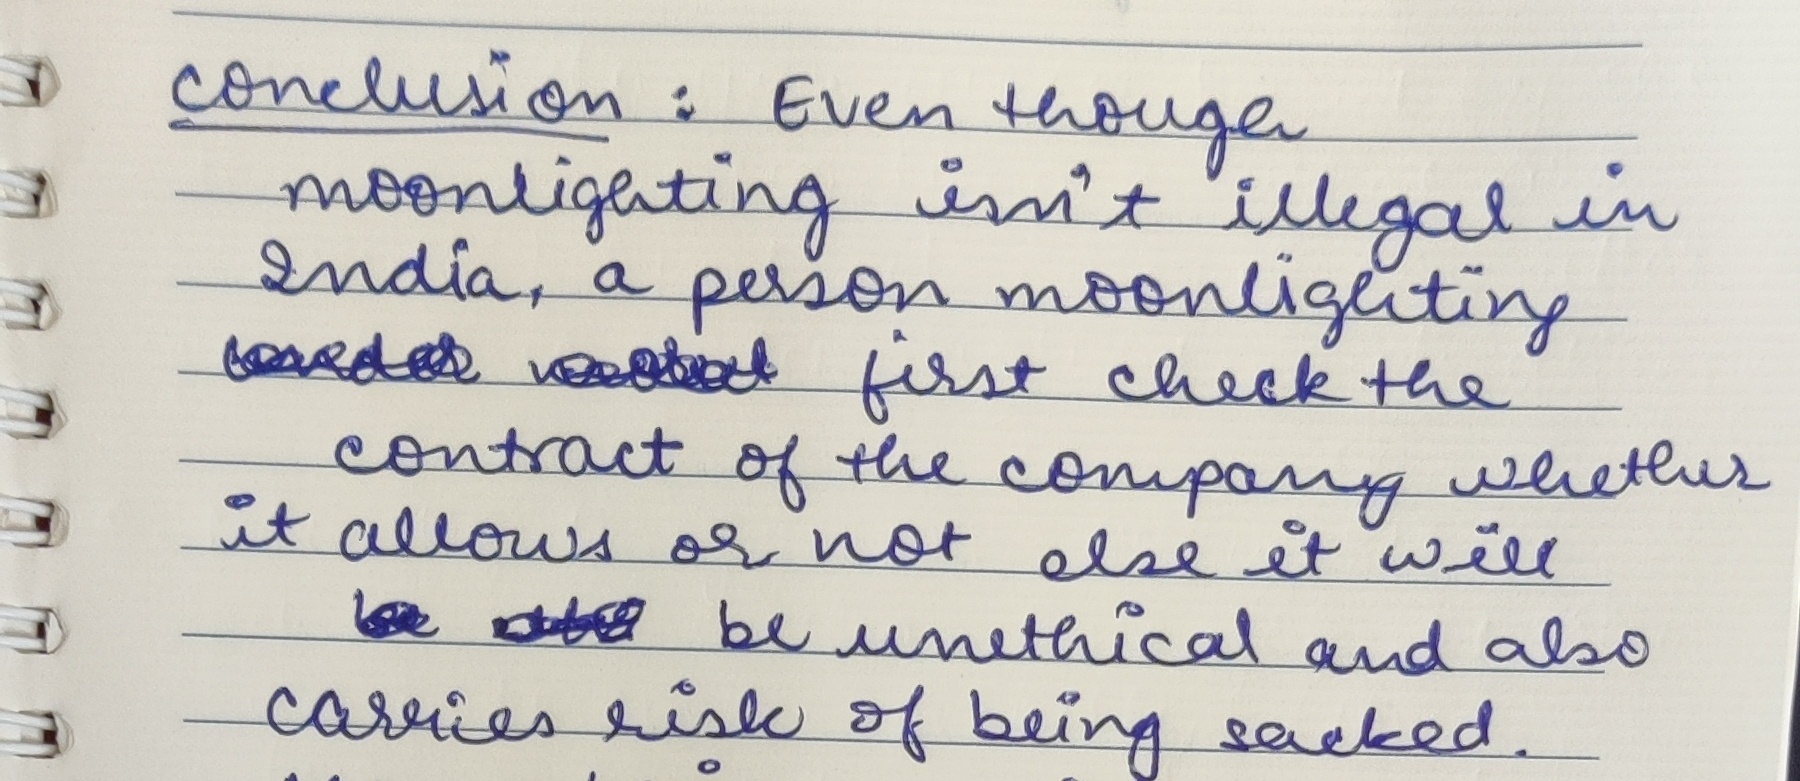 conclusion : Even though
moonlighting isn't illegal in
India, a person moonlighting
first check the
contract of the company whether
it allows or not else it will
be be unethical and also
carries risk of being sacked.